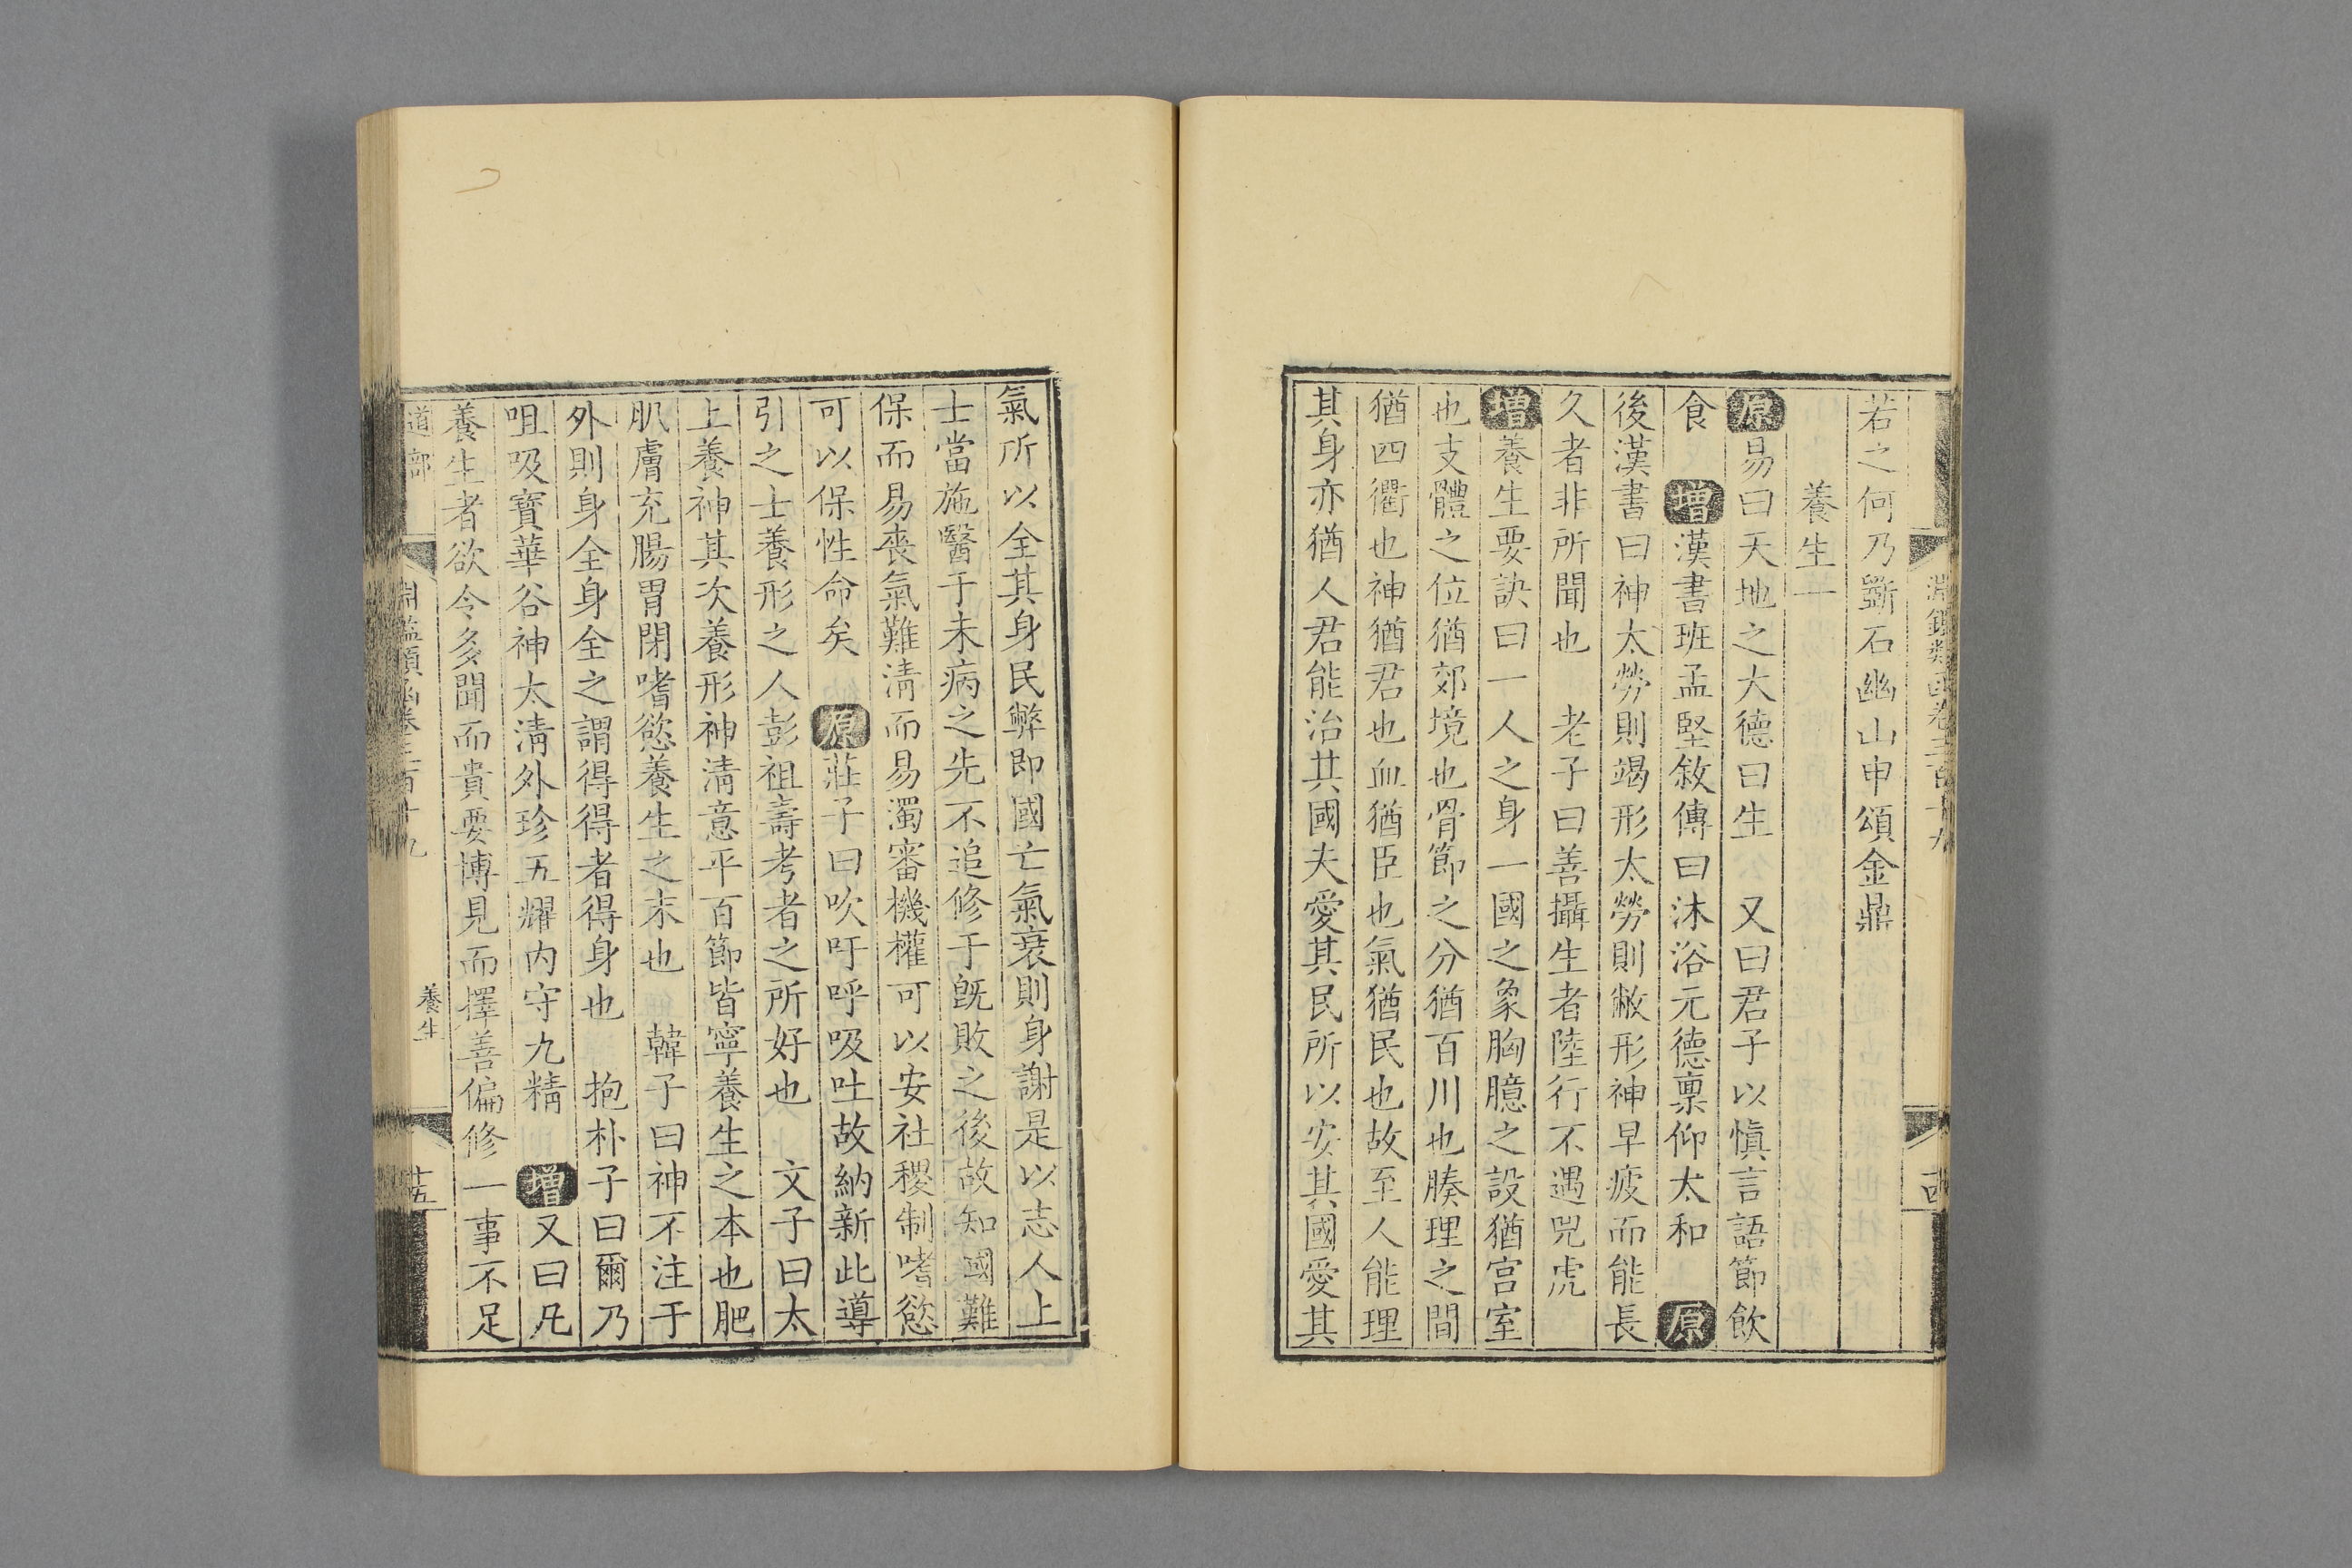 若之何乃斲石幽山申頌金鼎
養生一
原易曰天地之大德曰生　又曰君子以愼言語節飲
食　增漢書班孟堅敘傳曰沐浴元德稟仰太和　原
後漢書曰神太勞則竭形太勞則敝形神早疲而能長
久者非所聞也　老子曰善攝生者陸行不遇兕虎
增養生要訣曰一人之身一國之象胸臆之設猶宮室
也支體之位猶郊境也骨節之分猶百川也腠理之間
猶四衢也神猶君也血猶臣也氣猶民也故至人能理
其身亦猶人君能治其國夫愛其民所以安其國愛其
氣所以全其身民弊即國亡氣衰則身謝是以志人上
士當施醫于未病之先不追修于既敗之後故知國難
保而易喪氣難淸而易濁審機權可以安社稷制嗜慾
可以保性命矣　原莊子曰吹吁呼吸吐故納新此導
引之士養形之人彭祖壽考者之所好也　文子曰太
上養神其次養形神淸意平百節皆寧養生之本也肥
肌膚充腸胃閉嗜慾養生之末也　韓子曰神不注于
外則身全身全之謂得得者得身也　抱朴子曰爾乃
咀吸寶華谷神太淸外珍五耀內守九精　增又曰凡
養生者欲令多聞而貴要博見而擇善偏修一事不足
道部
養生
十五